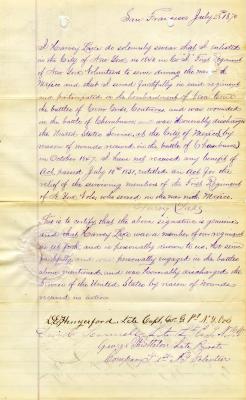 San Francisco July 25th 1870
I Harvey Lake do solemnly swear that I enlisted
in the City of New York in 1846 in Co. I First Regiment
of New York Volunteers to serve during the war with
Mexico and that I served faithfully in said regiment
and participated in the bombardment of Vera Cruz
the battles of Cerro Gordo Contreras and was wounded
in the battle of Cherubusco and was honorably discharged
the United States Service, at the City of Mexico, by
reason of wounds received in the battle of Cherubusco
in October 1847. I have not received any benefit of
Act passed July 18th 1851, entitled an Act for the
relief of the surviving members of the First Regiment
of N. York Vols. who served in the war with Mexico.
Harvey Lake
This is to certify that the above signature is genuine
and that Harvey Lake was a member of our regiment
as set forth, and is personally known to us, that he served
faithfully, and was personally engaged in the battles
above mentioned, and was honorably discharged the
Service of the United States by reason of wounds
received in action
Hungerford Late Capt. Co.
Late
George Late Private
Company I 1st N.Y. Volunteers